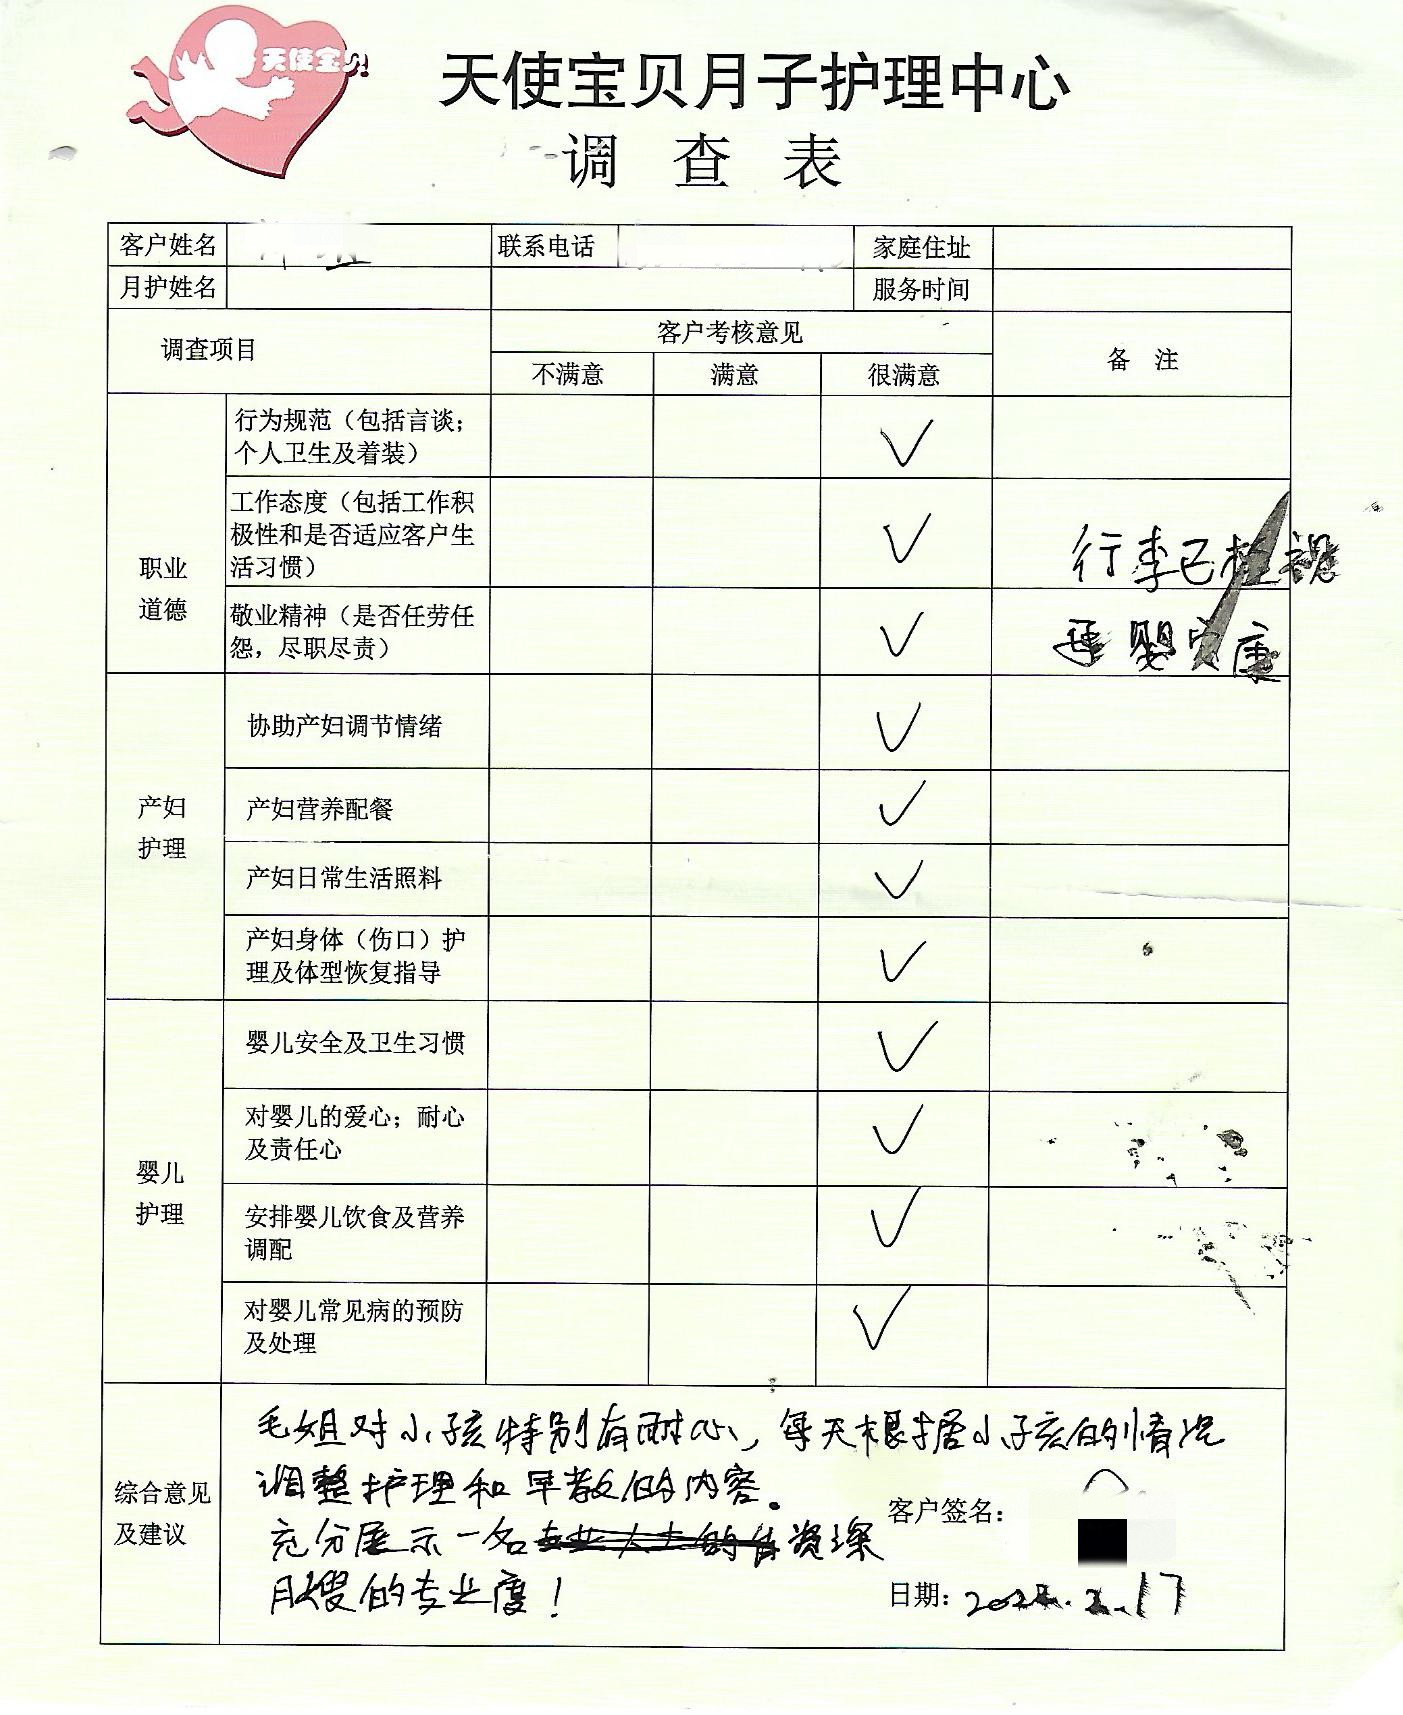 天使宝贝
天使宝贝月子护理中心
调 查 表
客户姓名 联系电话 家庭住址
月护姓名 服务时间
调查项目 客户考核意见 备 注
不满意 满意 很满意
职业
道德
行为规范（包括言谈；
个人卫生及着装）
工作态度（包括工作积
极性和是否适应客户生
活习惯）
敬业精神（是否任劳任
怨，尽职尽责）
行李已检视
母婴安康
产妇
护理
协助产妇调节情绪
产妇营养配餐
产妇日常生活照料
产妇身体（伤口）护
理及体型恢复指导
婴儿
护理
婴儿安全及卫生习惯
对婴儿的爱心；耐心
及责任心
安排婴儿饮食及营养
调配
对婴儿常见病的预防
及处理
综合意见
及建议
毛姐对小孩特别有耐心，每天根据小孩的情况
调整护理和早教的内容。
充分展示一名资深
月嫂的专业度！
客户签名：
日期：